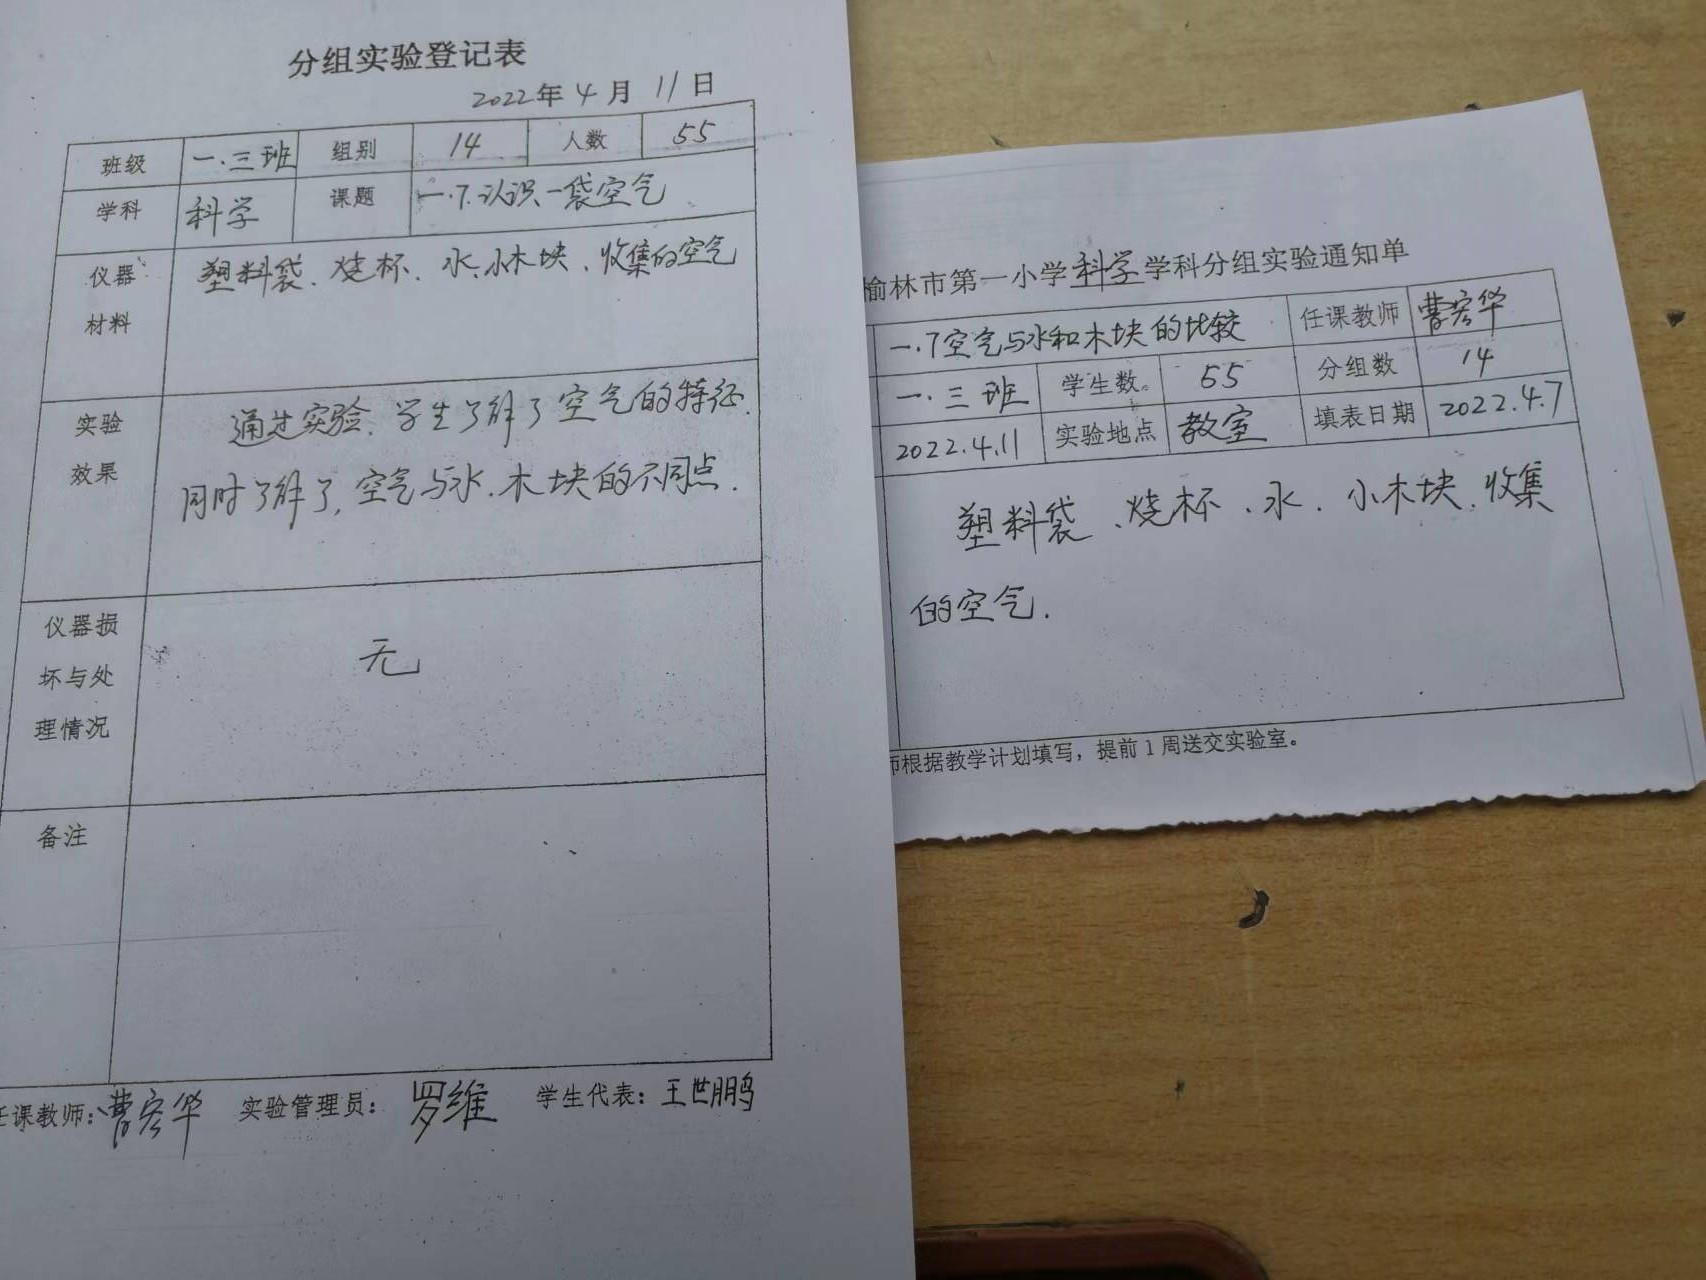 分组实验登记表
2022年 4 月 11 日
班级 一.三班 组别 14 人数 55
学科 科学 课题 一.7.认识一袋空气
仪器材料 塑料袋、烧杯、水、小木块、收集的空气
实验效果 通过实验、学生了解了空气的特征.
同时了解了,空气与水.木块的不同点.
仪器损坏与处理情况 无
备注
任课教师:曹宏华 实验管理员: 罗维 学生代表: 王世鹏
榆林市第一小学科学学科分组实验通知单
一.7空气与水和木块的比较 任课教师 曹宏华
一.三班 学生数 55 分组数 14
2022.4.11 实验地点 教室 填表日期 2022.4.7
塑料袋、烧杯、水、小木块、收集
的空气.
师根据教学计划填写，提前1周送交实验室。